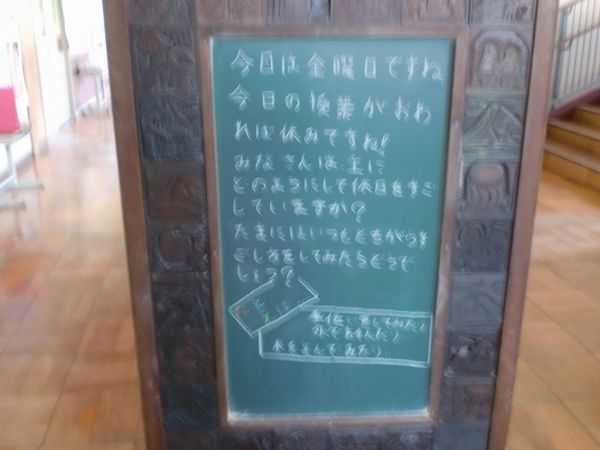 今日は金曜日ですね
今日の授業がおわ
れば休みですね!
みなさんは主に
どのようにして休日をすご
していますか?
たまにはいつもとちがうす
ごし方をしてみたらどうで
しょう?
してみたり
水であそんだり…
本をよんでみたり…